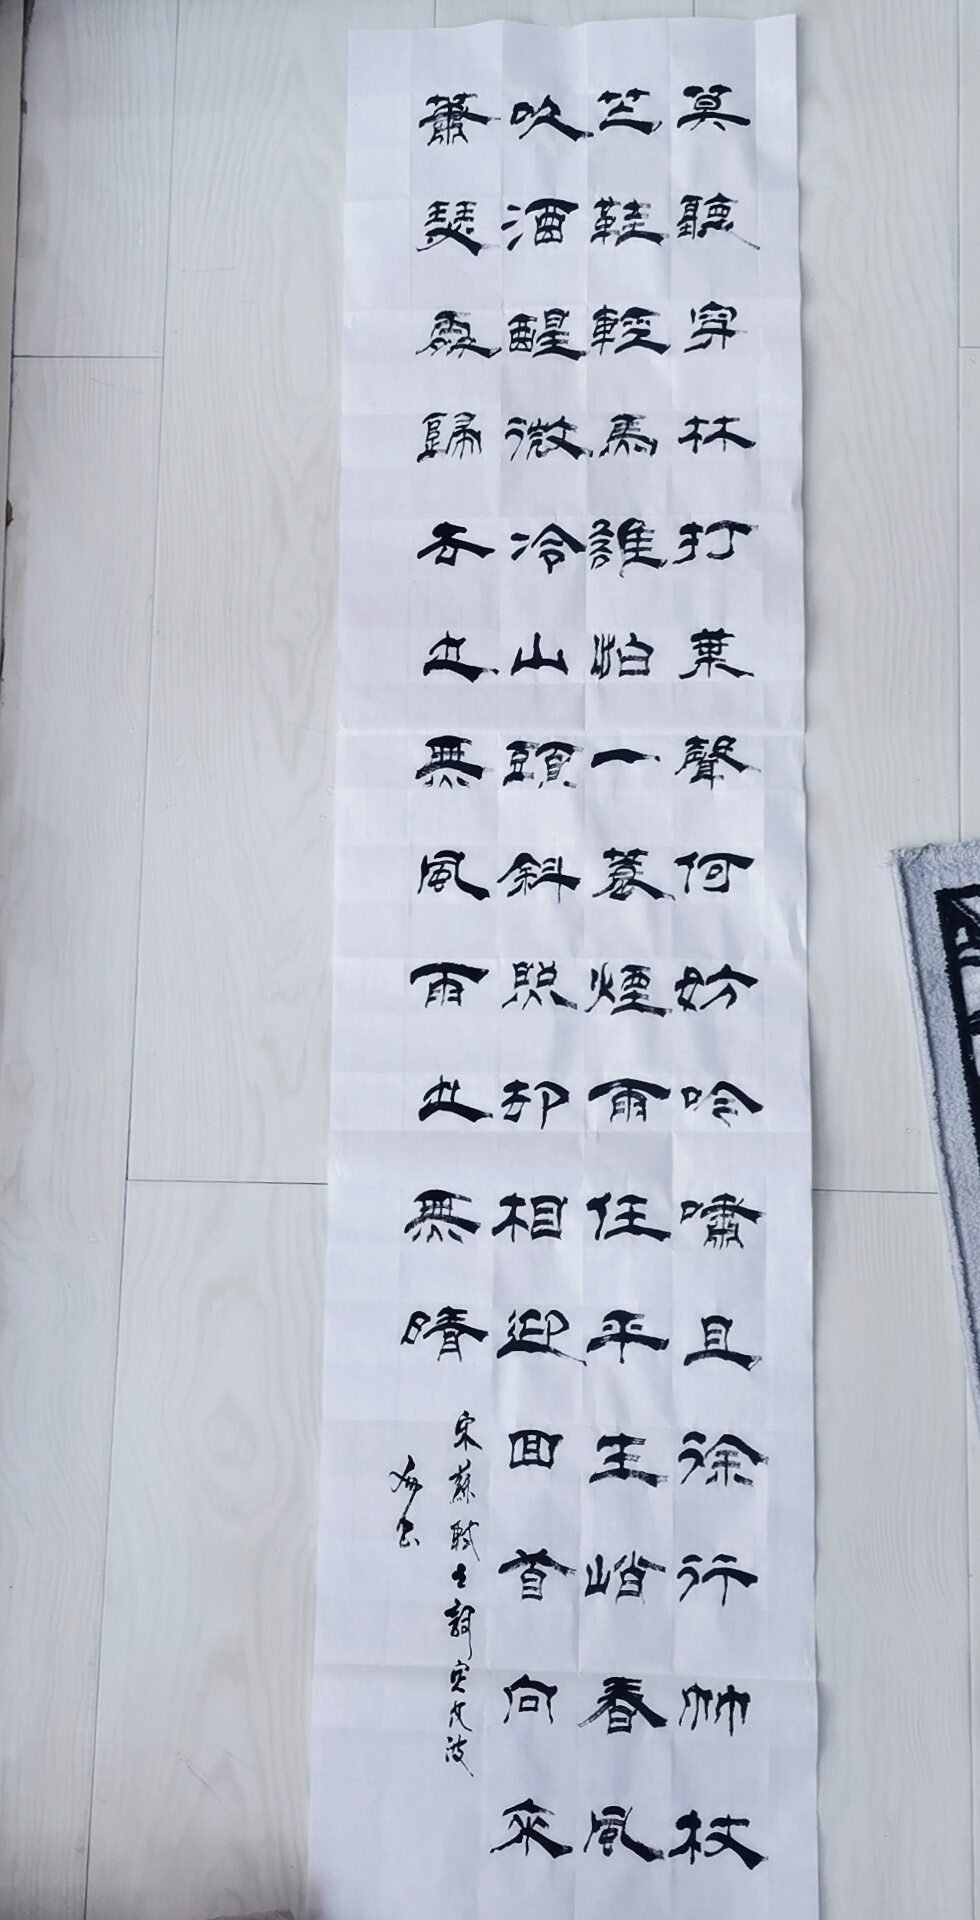 莫聽穿林打葉聲何妨吟嘯且徐行竹杖
芒鞋輕馬誰怕一蓑煙雨任平生峭春風
吹酒醒微冷山頭斜照却相迎回首向來
蕭瑟處歸去也無風雨也無晴
宋蘇軾士詞定風波
書